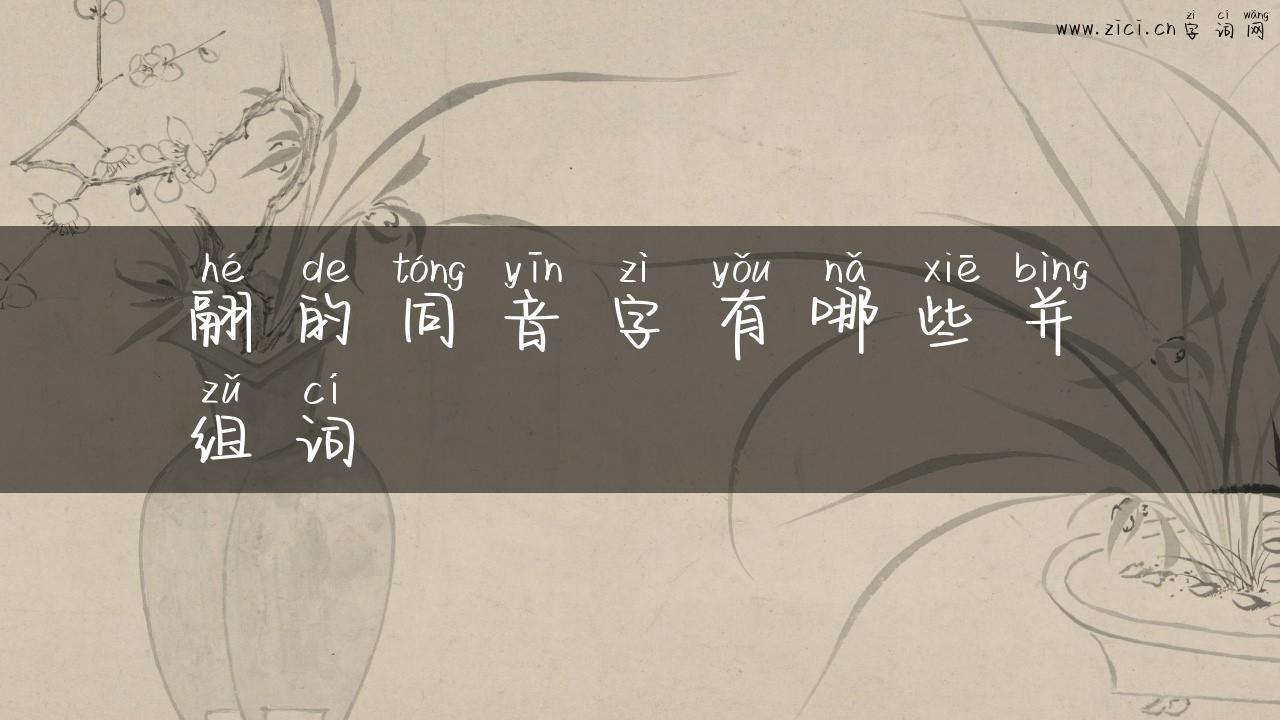 zì cí wǎng
www.zici.cn 字词网
hé de tóng yīn zì yǒu nǎ xiē bìng
翮的同音字有哪些并
zǔ cí
组词